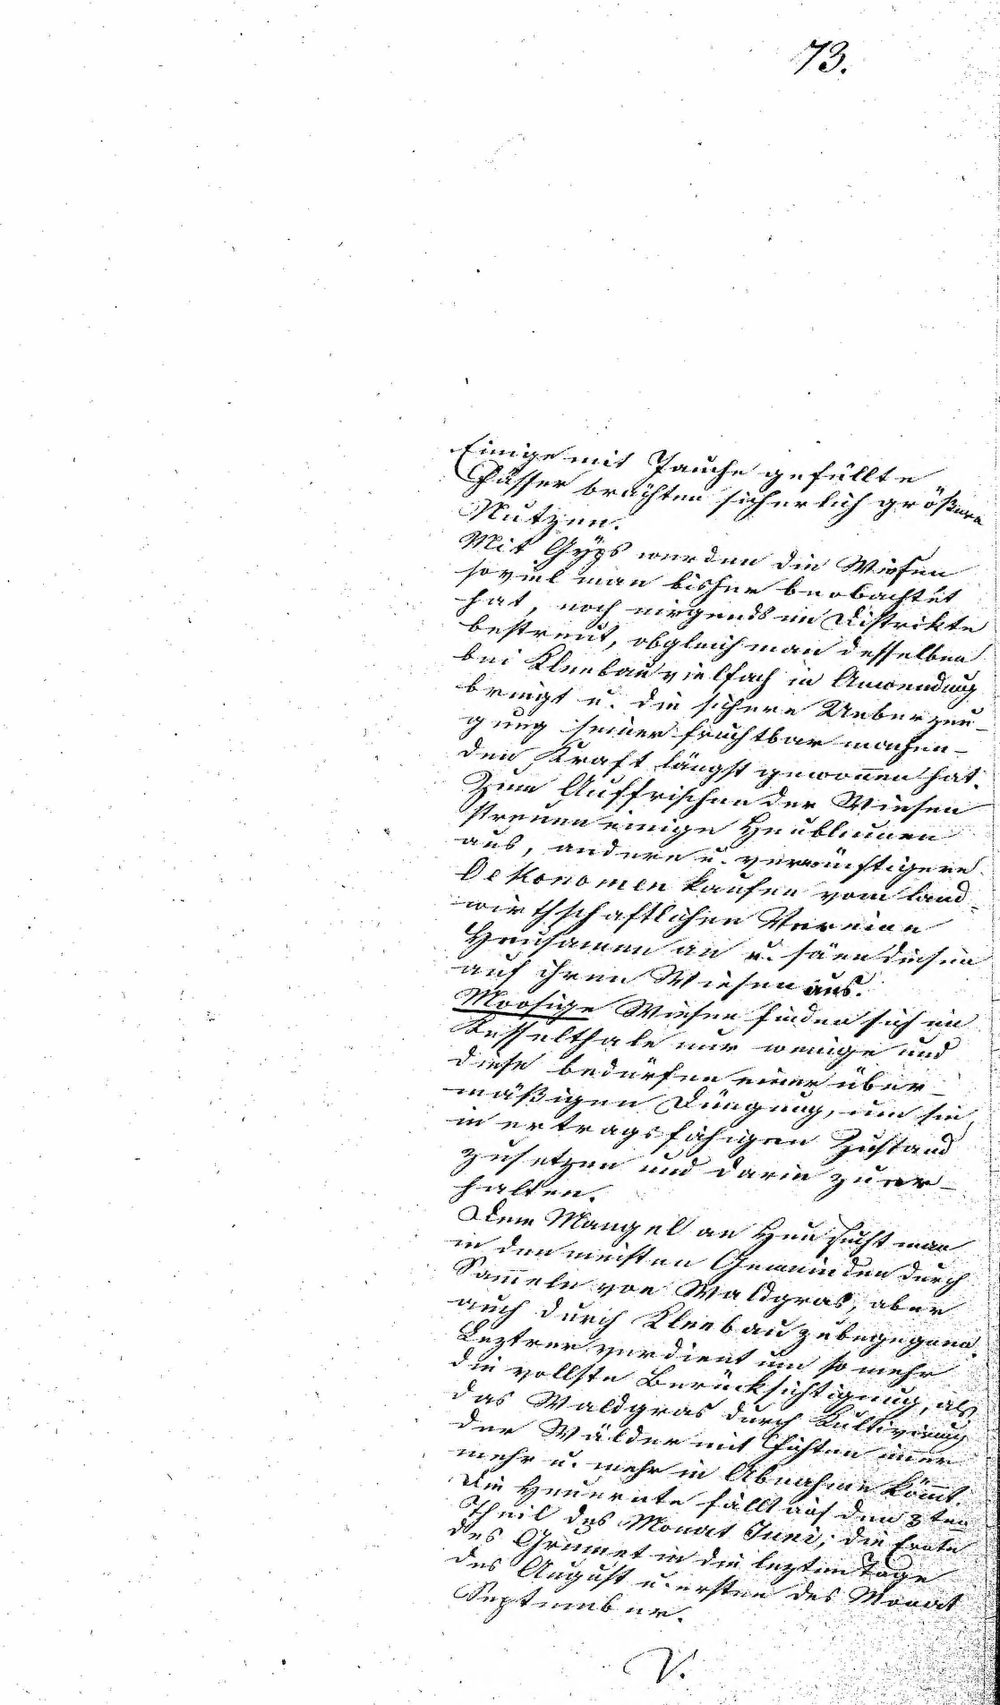 73.
Einige mit Jauche gefüllte
Fässer brächten sicherlich größern
Nutzen.
Mit Gyps werden die Wiesen
soviel man bisher beobachtet
hat, noch nirgends im Distrikte
bestreut, obgleich man desselben
bei Kleebau vielfach in Anwendung
bringt u. die sichere Ueberzeu-
gung seiner fruchtbar machen-
den Kraft längst gewonnen hat.
Zum Auffrischen der Wiesen
streuen einige Heublumen
aus, andere u. vernünftigere
Oekonomen kaufen vom land-
wirthschaftlichen Vereine
Heusamen an u. säen diesen
auf ihren Wiesen aus.
Moosige Wiesen finden sich im
Kesselthale nur wenige und
diese bedürfen einer über-
mäßigen Düngung, um sie
in ertragsfähigen Zustand
zusetzen und darin zu er-
halten.
Dem Mangel an Heu sucht man
in den meisten Gemeinden durch
Sammeln von Waldgras, aber
auch durch Kleebau zubegegnen.
Leztrer verdient um so mehr
die vollste Berücksichtigung, als
das Waldgras durch Kultivirung
der Wälder mit Fichten immer
mehr u. mehr in Abnahme kömmt.
Die Heuernte fällt auf den 3ten
Theil des Monat Juni; die Ernte
des Grumet in die lezten Tage
des August u. ersten des Monat
September.
V.